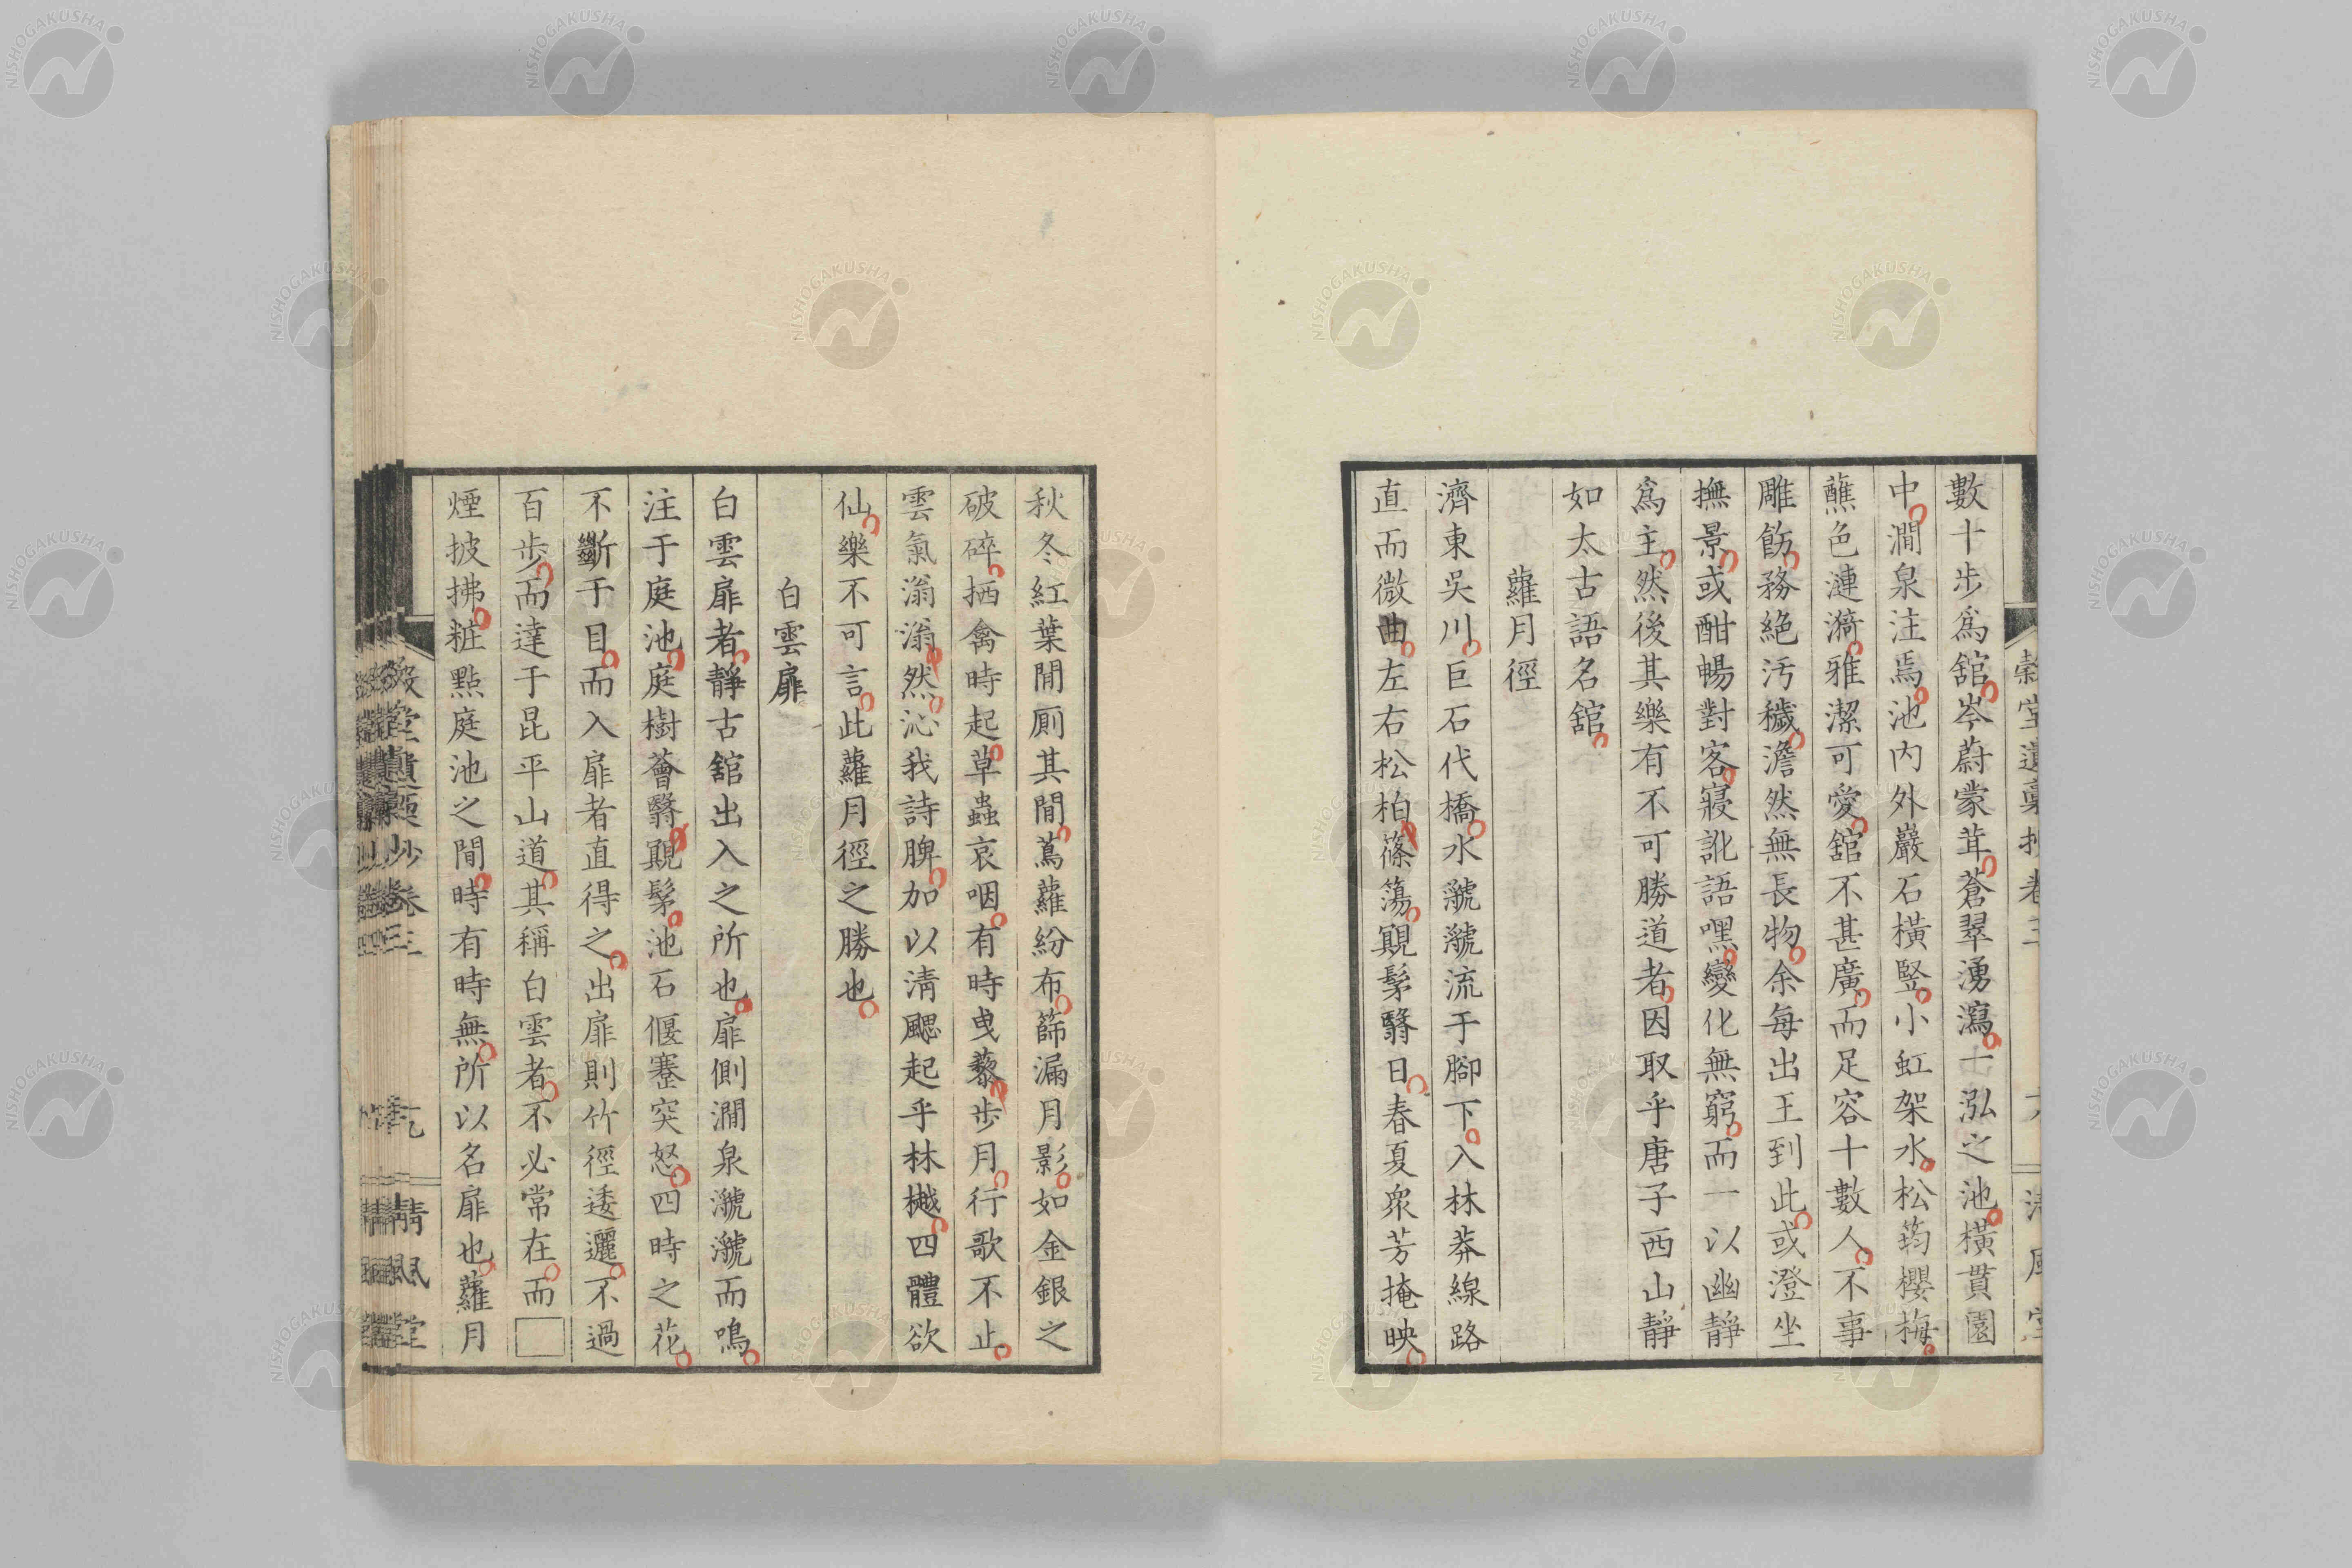 數十步爲舘岑蔚蒙茸蒼翠湧瀉一泓之池橫貫園
中澗泉注焉池內外巖石橫竪小虹架水松筠櫻梅
蘸色漣漪雅潔可愛舘不甚廣而足容十數人不事
雕飭務絶汚穢澹然無長物余每出王到此或澄坐
撫景或酣暢對客寢訛語嘿變化無窮而一以幽靜
爲主然後其樂有不可勝道者因取乎唐子西山靜
如太古語名舘
蘿月徑
濟東吳川巨石代橋水㶁㶁流于腳下入林莽線路
直而微曲左右松柏篠簜䰐髳翳日春夏衆芳掩映
秋冬紅葉間厠其間蔦蘿紛布篩漏月影如金銀之
破碎栖禽時起草蟲哀咽有時曳藜步月行歌不止
雲氣滃滃然沁我詩脾加以淸颸起乎林樾四體欲
仙樂不可言此蘿月徑之勝也
白雲扉
白雲扉者靜古舘出入之所也扉側澗泉㶁㶁而鳴
注于庭池庭樹薈翳䰐髳池石偃蹇突怒四時之花
不斷于目而入扉者直得之出扉則竹徑逶邐不過
百步而達于昆平山道其稱白雲者不必常在而□
煙披拂粧點庭池之間時有時無所以名扉也蘿月
穀堂遺稾抄卷三
淸風堂